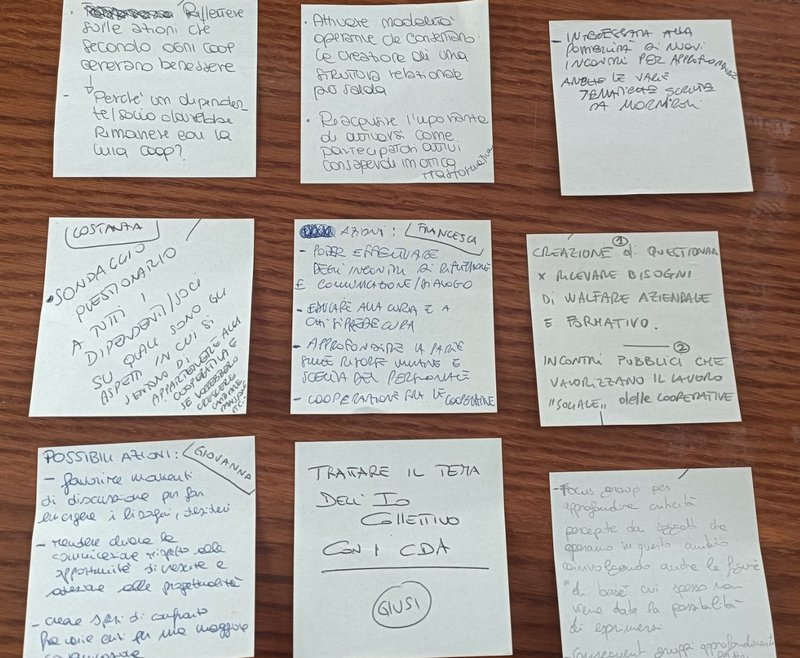 Riflettere
sulle azioni che
secondo ogni coop
generano benessere
- Perché un dipenden-
te/socio dovrebbe
rimanere con la
mia coop?
• Attivare modalità
operative che consentano
la creazione di una
struttura relazionale
più salda
• Riacquisire l'importanza
di attivarsi come
partecipatori attivi
consapevoli in ottica
trasformativa
- INTERESSATA ALLA
POSSIBILITÀ DI NUOVI
INCONTRI PER APPROFONDIRE
ANCHE LE VARIE
TEMATICHE
DA
COSTANZA
• SONDAGGIO
QUESTIONARIO
A TUTTI I
DIPENDENTI/SOCI
SU QUALI SONO GLI
ASPETTI IN CUI SI
SENTONO DI
APPARTENERE ALLA
COOPERATIVA E
SE VORREBBERO
CRESCERE
CAMBIARE
MANSIONE
ETC.
AZIONI: FRANCESCA
- POTER EFFETTUARE
DEGLI INCONTRI DI RIFLESSIONE
E COMUNICAZIONE/DIALOGO
- EDUCARE ALLA CURA E A
CHI SI PRENDE CURA
- APPROFONDIRE LA PARTE
SULLE RISORSE UMANE E
SCELTA DEL PERSONALE
- COOPERAZIONE FRA LE COOPERATIVE
①
CREAZIONE di QUESTIONARI
X RILEVARE BISOGNI
DI WALFARE AZIENDALE
E FORMATIVO.
②
INCONTRI PUBBLICI CHE
VALORIZZANO IL LAVORO
"SOCIALE" delle COOPERATIVE
POSSIBILI AZIONI: GIOVANNA
- favorire momenti
di discussione per far
emergere i bisogni, desideri
- rendere chiara la
comunicazione rispetto alle
opportunità di crescita e
adesione alle progettualità
- creare spazi di confronto
fra varie enti per una maggiore
conoscenza
TRATTARE IL TEMA
DELL'IO
COLLETTIVO
CON I CDA
GIUSI
- Focus group per
approfondire criticità
percepite da soggetti che
operano in questo ambito
coinvolgendo anche le figure
"di base" cui spesso non
viene data la possibilità
di esprimersi
- gruppi approfondimenti